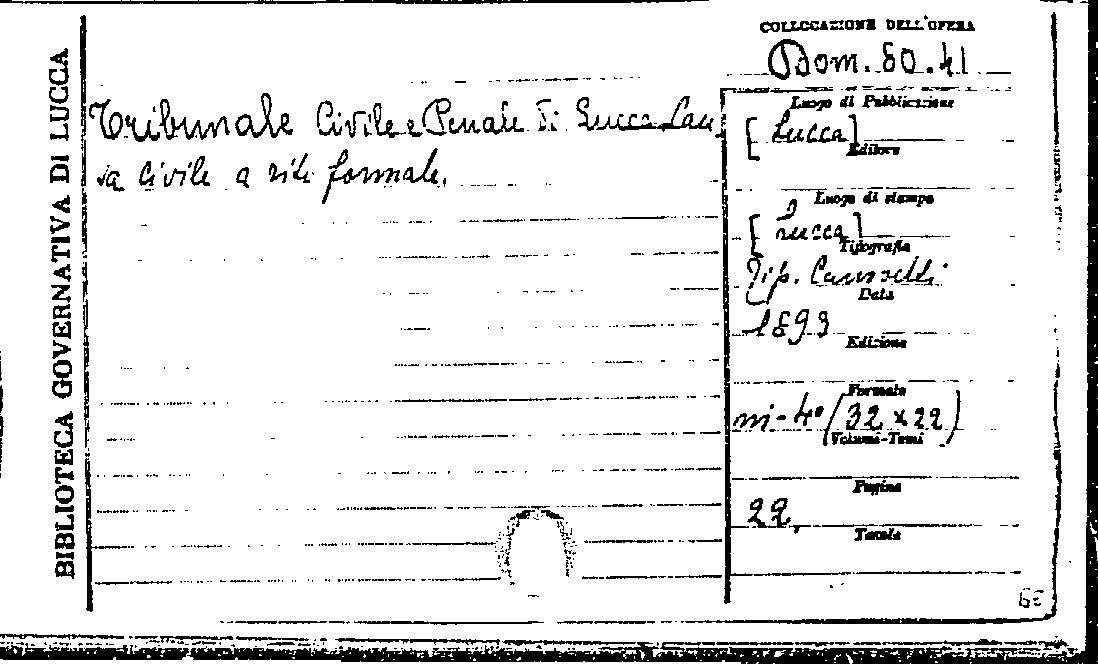 BIBLIOTECA GOVERNATIVA DI LUCCA
COLLOCAZIONE DELL'OPERA
Bom. 80.41
Tribunale Civile e Penale di Lucca Cau
sa Civile a rito formale.
Luogo di Pubblicazione
[Lucca]
Editore
Luogo di stampa
[Lucca]
Tipografia
Tip. Canovetti
Data
1893
Edizione
Formato
in-4° (32 x 22)
Volumi-Tomi
Pagine
22,
Tavole